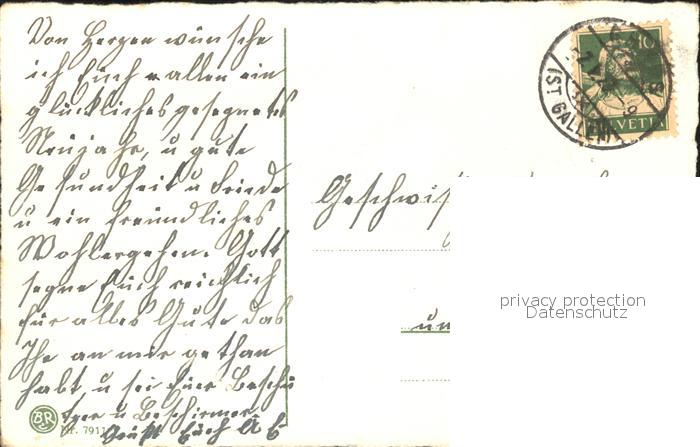 Von Herzen wünsche
ich Euch allen ein
glückliches gesegnetes
Neujahr, u gute
Gesundheit u Friede
u ein freundliches
Wohlergehen. Gott
segne Euch reichlich
für alles Gute das
Ihr an mir gethan
habt, u sei Euer Beschü
tzer u Beschirmer
Grüßt Euch
Geschwis
un
10
(ST. GALLEN)
HELVETIA
BR
Nr. 791
privacy protection
Datenschutz